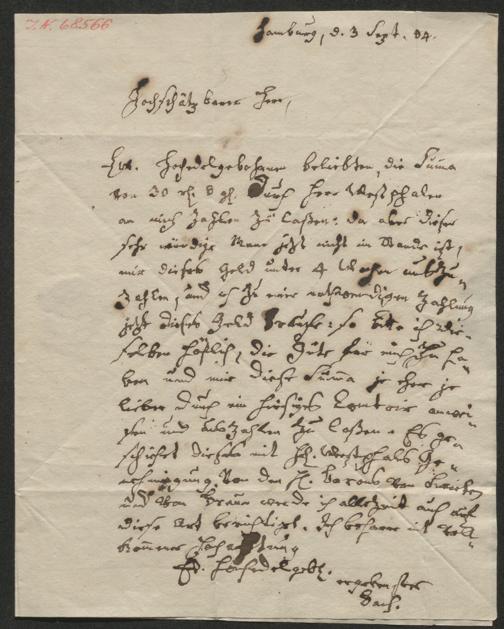 I.N. 68566
Hamburg, d. 3 Sept. 84.
Hochschätzbarer Herr,
Ew. Hochedelgebohrnen beliebten, die Summa
von 30 rh. 8 gl. durch Herr Westphalen
an mich zahlen zu laßen: da aber dieser
sehr würdige Mann jetzt nicht im Stande ist,
mir dieses Geld unter 4 Wochen auszu-
zahlen, und ich zu einer nothwendigen Zahlung
jetzt dieses Geld brauche: so bitte ich die-
selben höflich, die Güte für mich zu ha-
ben und mir diese Summa je eher je
lieber durch ein hiesiges Comtoir anwei-
sen und auszahlen zu laßen. Es ge-
schiehet dieses mit H. Westphals Ge-
nehmigung. Von den H. Barons van Swieten
und von Braun werde ich allezeit auch auf
diese Art berichtiget. Ich beharre mit voll-
kommner Hochachtung
Ew. Hochedelgeb.
ergebenster
Bach.